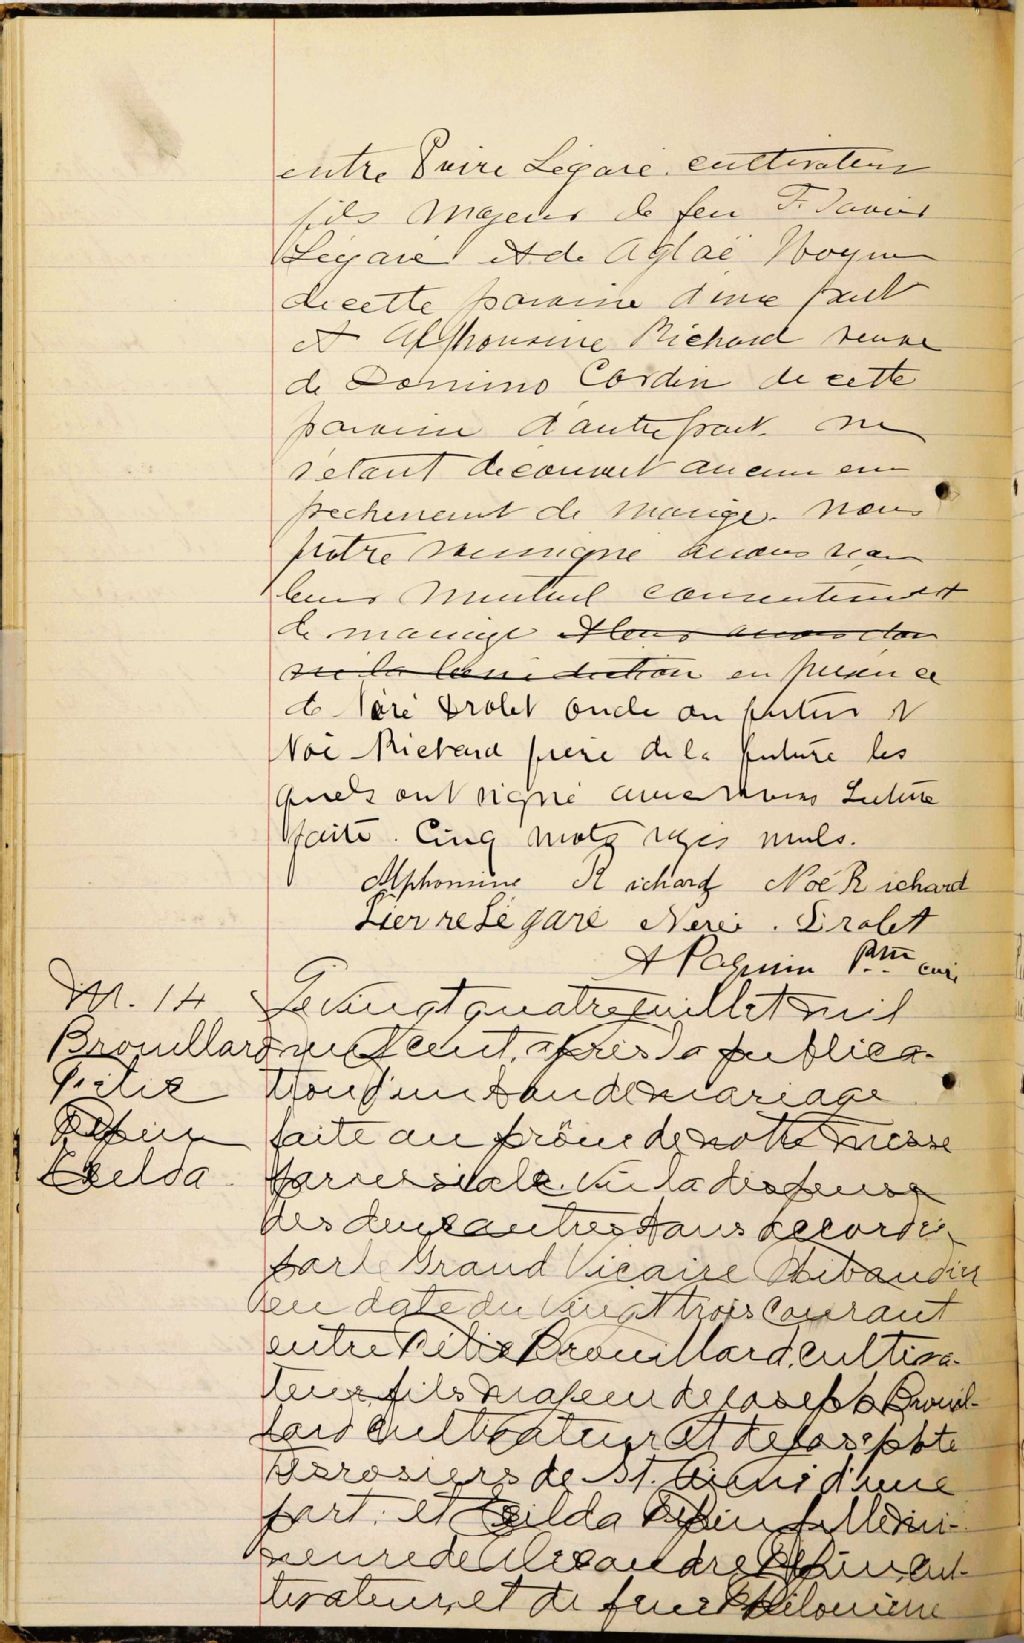 entre Pierre Légaré cultivateur
fils majeur de feu F. Xavier
Légaré et de Aglaé
de cette paroisse d'une part
et Alphonsine Richard veuve
de Domino Cardin de cette
paroisse d'autre part. ne
s'etant découvert aucun em
pechement de mariage. nous
prêtre soussigné avons reçu
leur mutuel consentement
de mariage et leur avons don
né la bénédiction en présence
de Néré Drolet oncle du futur et
Noé Richard frère de la future les
quels ont signé avec nous Lecture
faite. Cinq mots rayés nuls.
Alphonsine Richard Noé Richard
Pierre Légaré Neréé. Drolet
A Paquin Ptre curé
M. 14
Brouillard
Félix
Pépin
Exilda
Le vingt quatre juillet mil
neuf cent, après la publica-
tion d'un ban de mariage
faite au prône de notre messe
paroissiale. Vu la dispense
des deux autres bans accordée
par le Grand Vicaire Thibaudier
en date du vingt trois courant
entre Félix Brouillard, cultiva-
teur, fils majeur de Joseph Brouil-
lard cultivateur et de Josephte
Desrosiers de St. Aimé d'une
part. et Exilda Pépin fille mi-
neure de Alexandre Pépin, cul-
tivateur, et de feue Philomène